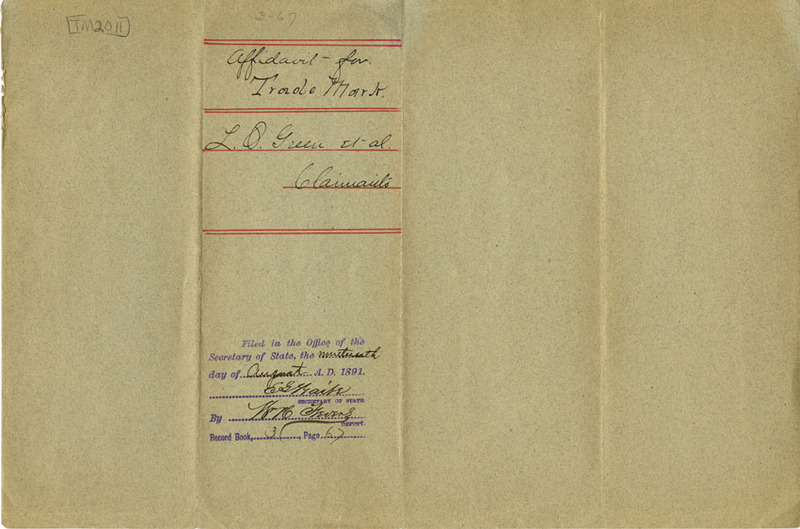 [TM2011]
3-67
Affidavit - for
Trade Mark.
L. O. Green et al.
Claimants
Filed in the Office of the
Secretary of State, the nineteenth
day of August A. D. 1891.
E G Waite
SECRETARY OF STATE.
By Wm H.
DEPUTY.
Record Book, 3, Page 67